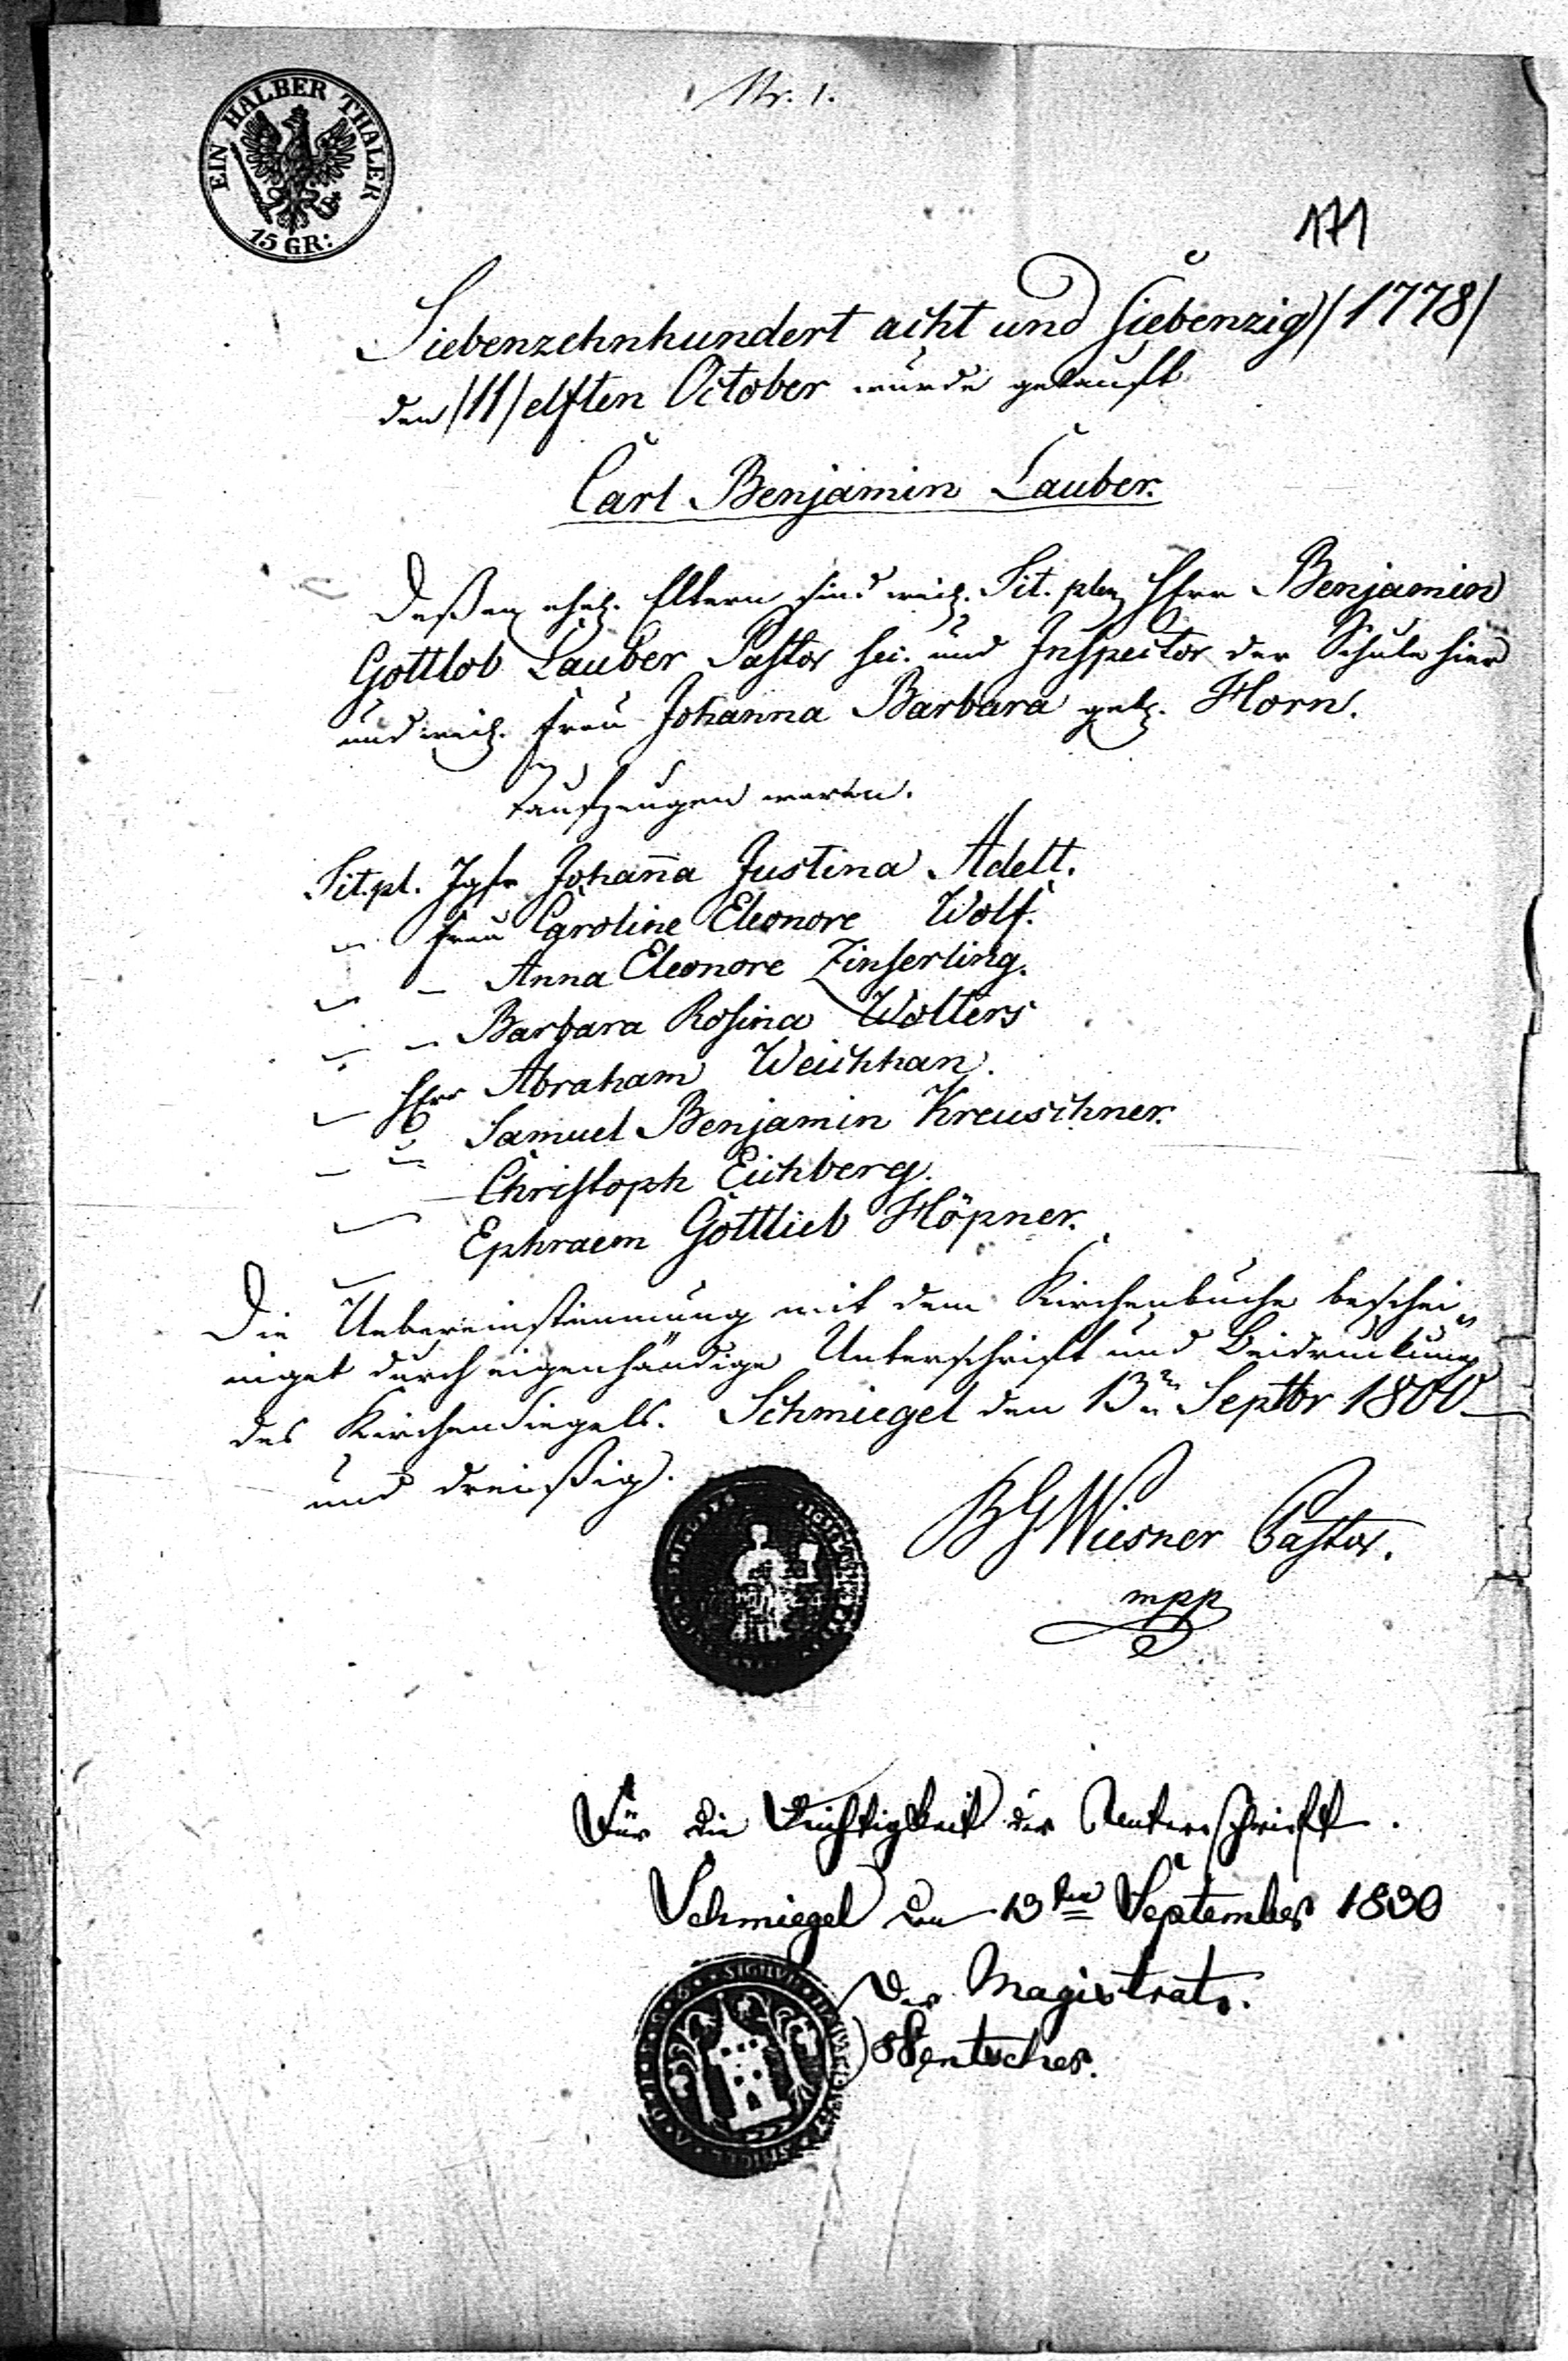 EIN HALBER THALER
15 GR:
Nr. 1.
171
Siebenzehnhundert acht und siebenzig /1778/
den /11/ elften October wurde getauft
Carl Benjamin Lauber.
Deßen ehel. Eltern sind weil. Tit. plen Herr Benjamin
Gottlob Lauber Pastor hei. und Inspector der Schule hier
und weil. Frau Johanna Barbara geb. Horn.
Taufzeugen waren.
Tit. pl. Jgfr Johan̄a Justina Adelt.
" Frau Caroline Eleonore Wolf.
" - Anna Eleonore Zinserling.
" - Barbara Rosina Wolters
" Herr Abraham Weichhan.
- " Samuel Benjamin Kreuschner.
- Christoph Eichberg.
- Ephraem Gottlieb Höpner.
Die Uebereinstimmung mit dem Kirchenbuche beschei„
niget durch eigenhändige Unterschrift und Beidruckung
des Kirchensiegels. Schmiegel den 13n Septbr 1800
und dreißig.
BG Wiesner Pastor.
mpp
Für die Richtigkeit der Unterschrift.
Schmiegel den 13ten September 1830
Der Magistrat.